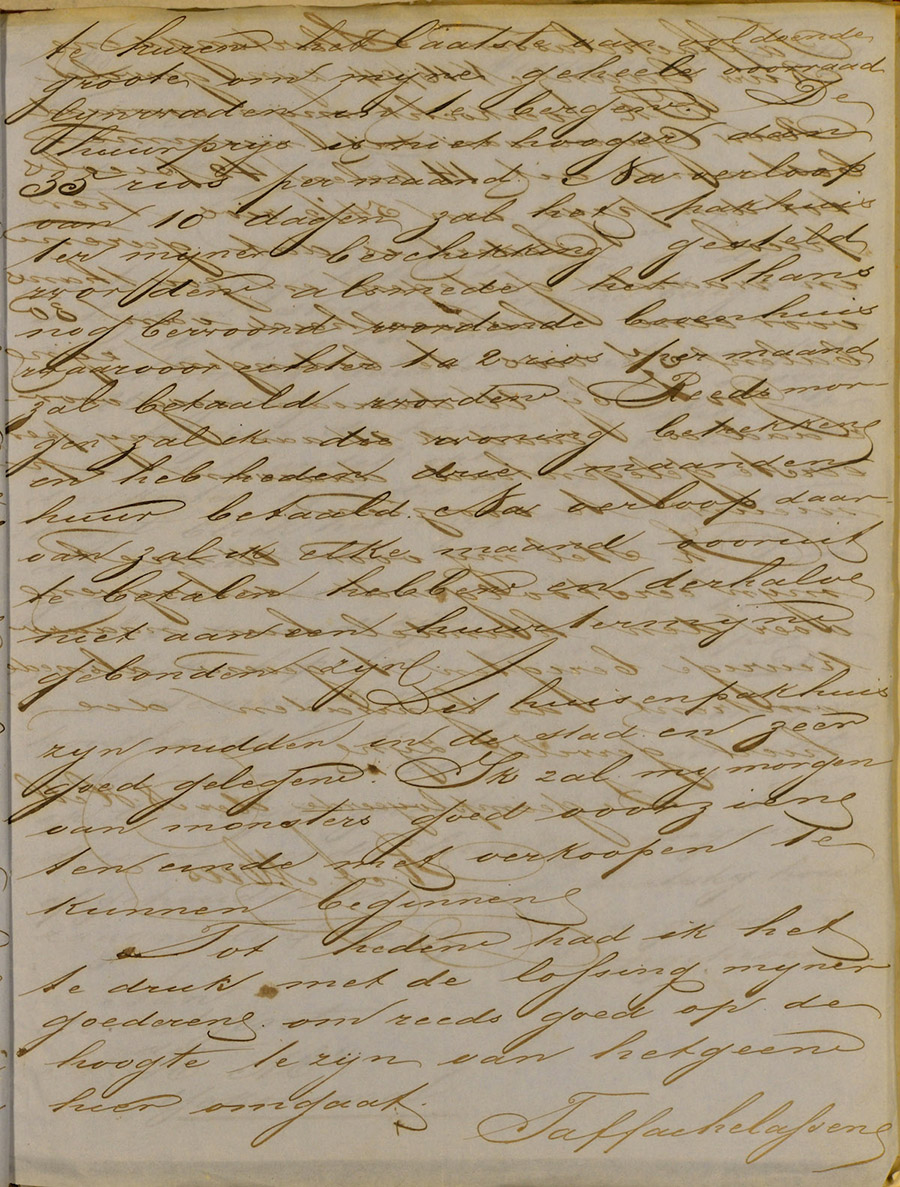 te huren het laatste van voldoende
groote om myne geheele voorraad
lynwaden in te bergen. De
huurprys is niet hooger dan
35 rios per maand. Na verloop
van 10 dagen zal het pakhuis
ter myner beschikking gesteld
worden alsmede het thans
nog bewoond wordende bovenhuis
waarvoor echter 12 rios per maand
zal betaald worden. Reeds mor-
gen zal ik die woning betrekken
en heb heden drie maanden
huur betaald. Na verloop daar-
van zal ik elke maand vooruit
te betalen hebben en derhalve
niet aan een huurtermyn
gebonden zyn.
Dit huis en pakhuis
zyn midden in de stad en zeer
goed gelegen. Ik zal my morgen
van monsters goed voorzien
ten einde met verkoopen te
kunnen beginnen
Tot heden had ik het
te druk met de lossing myner
goederen om reeds goed op de
hoogte te zyn van hetgeen
hier omgaat.